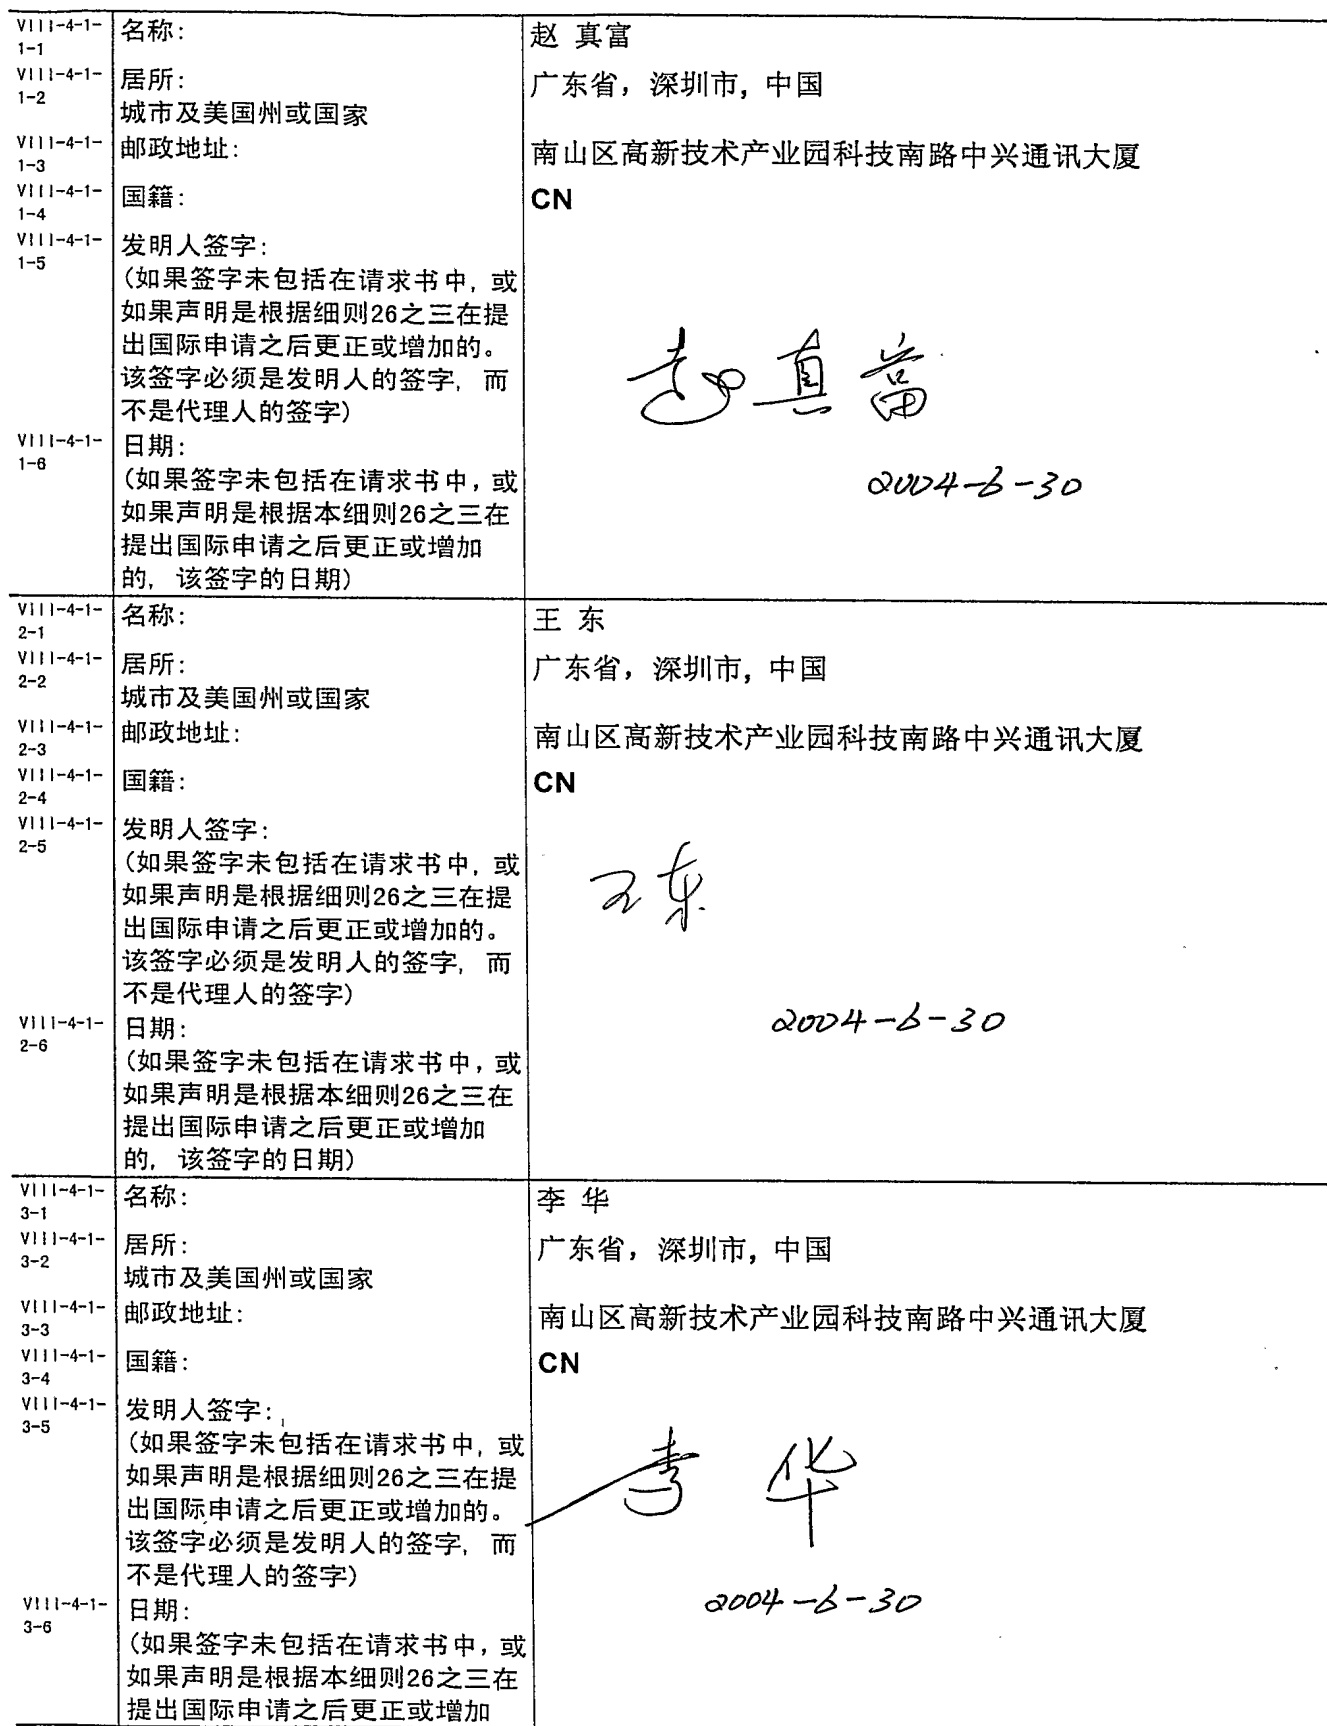 VIII-4-1-1-1 名称: 赵 真富
VIII-4-1-1-2 居所: 广东省，深圳市, 中国
城市及美国州或国家
VIII-4-1-1-3 邮政地址: 南山区高新技术产业园科技南路中兴通讯大厦
VIII-4-1-1-4 国籍: CN
VIII-4-1-1-5 发明人签字:
(如果签字未包括在请求书中, 或
如果声明是根据细则26之三在提
出国际申请之后更正或增加的。
该签字必须是发明人的签字, 而
不是代理人的签字)
赵真富
VIII-4-1-1-6 日期:
(如果签字未包括在请求书中，或
如果声明是根据本细则26之三在
提出国际申请之后更正或增加
的, 该签字的日期)
2004-6-30
VIII-4-1-2-1 名称: 王 东
VIII-4-1-2-2 居所: 广东省，深圳市, 中国
城市及美国州或国家
VIII-4-1-2-3 邮政地址: 南山区高新技术产业园科技南路中兴通讯大厦
VIII-4-1-2-4 国籍: CN
VIII-4-1-2-5 发明人签字:
(如果签字未包括在请求书中, 或
如果声明是根据细则26之三在提
出国际申请之后更正或增加的。
该签字必须是发明人的签字, 而
不是代理人的签字)
王东
VIII-4-1-2-6 日期:
(如果签字未包括在请求书中，或
如果声明是根据本细则26之三在
提出国际申请之后更正或增加
的, 该签字的日期)
2004-6-30
VIII-4-1-3-1 名称: 李 华
VIII-4-1-3-2 居所: 广东省，深圳市, 中国
城市及美国州或国家
VIII-4-1-3-3 邮政地址: 南山区高新技术产业园科技南路中兴通讯大厦
VIII-4-1-3-4 国籍: CN
VIII-4-1-3-5 发明人签字:
(如果签字未包括在请求书中, 或
如果声明是根据细则26之三在提
出国际申请之后更正或增加的。
该签字必须是发明人的签字, 而
不是代理人的签字)
李 华
VIII-4-1-3-6 日期:
(如果签字未包括在请求书中，或
如果声明是根据本细则26之三在
提出国际申请之后更正或增加
2004-6-30